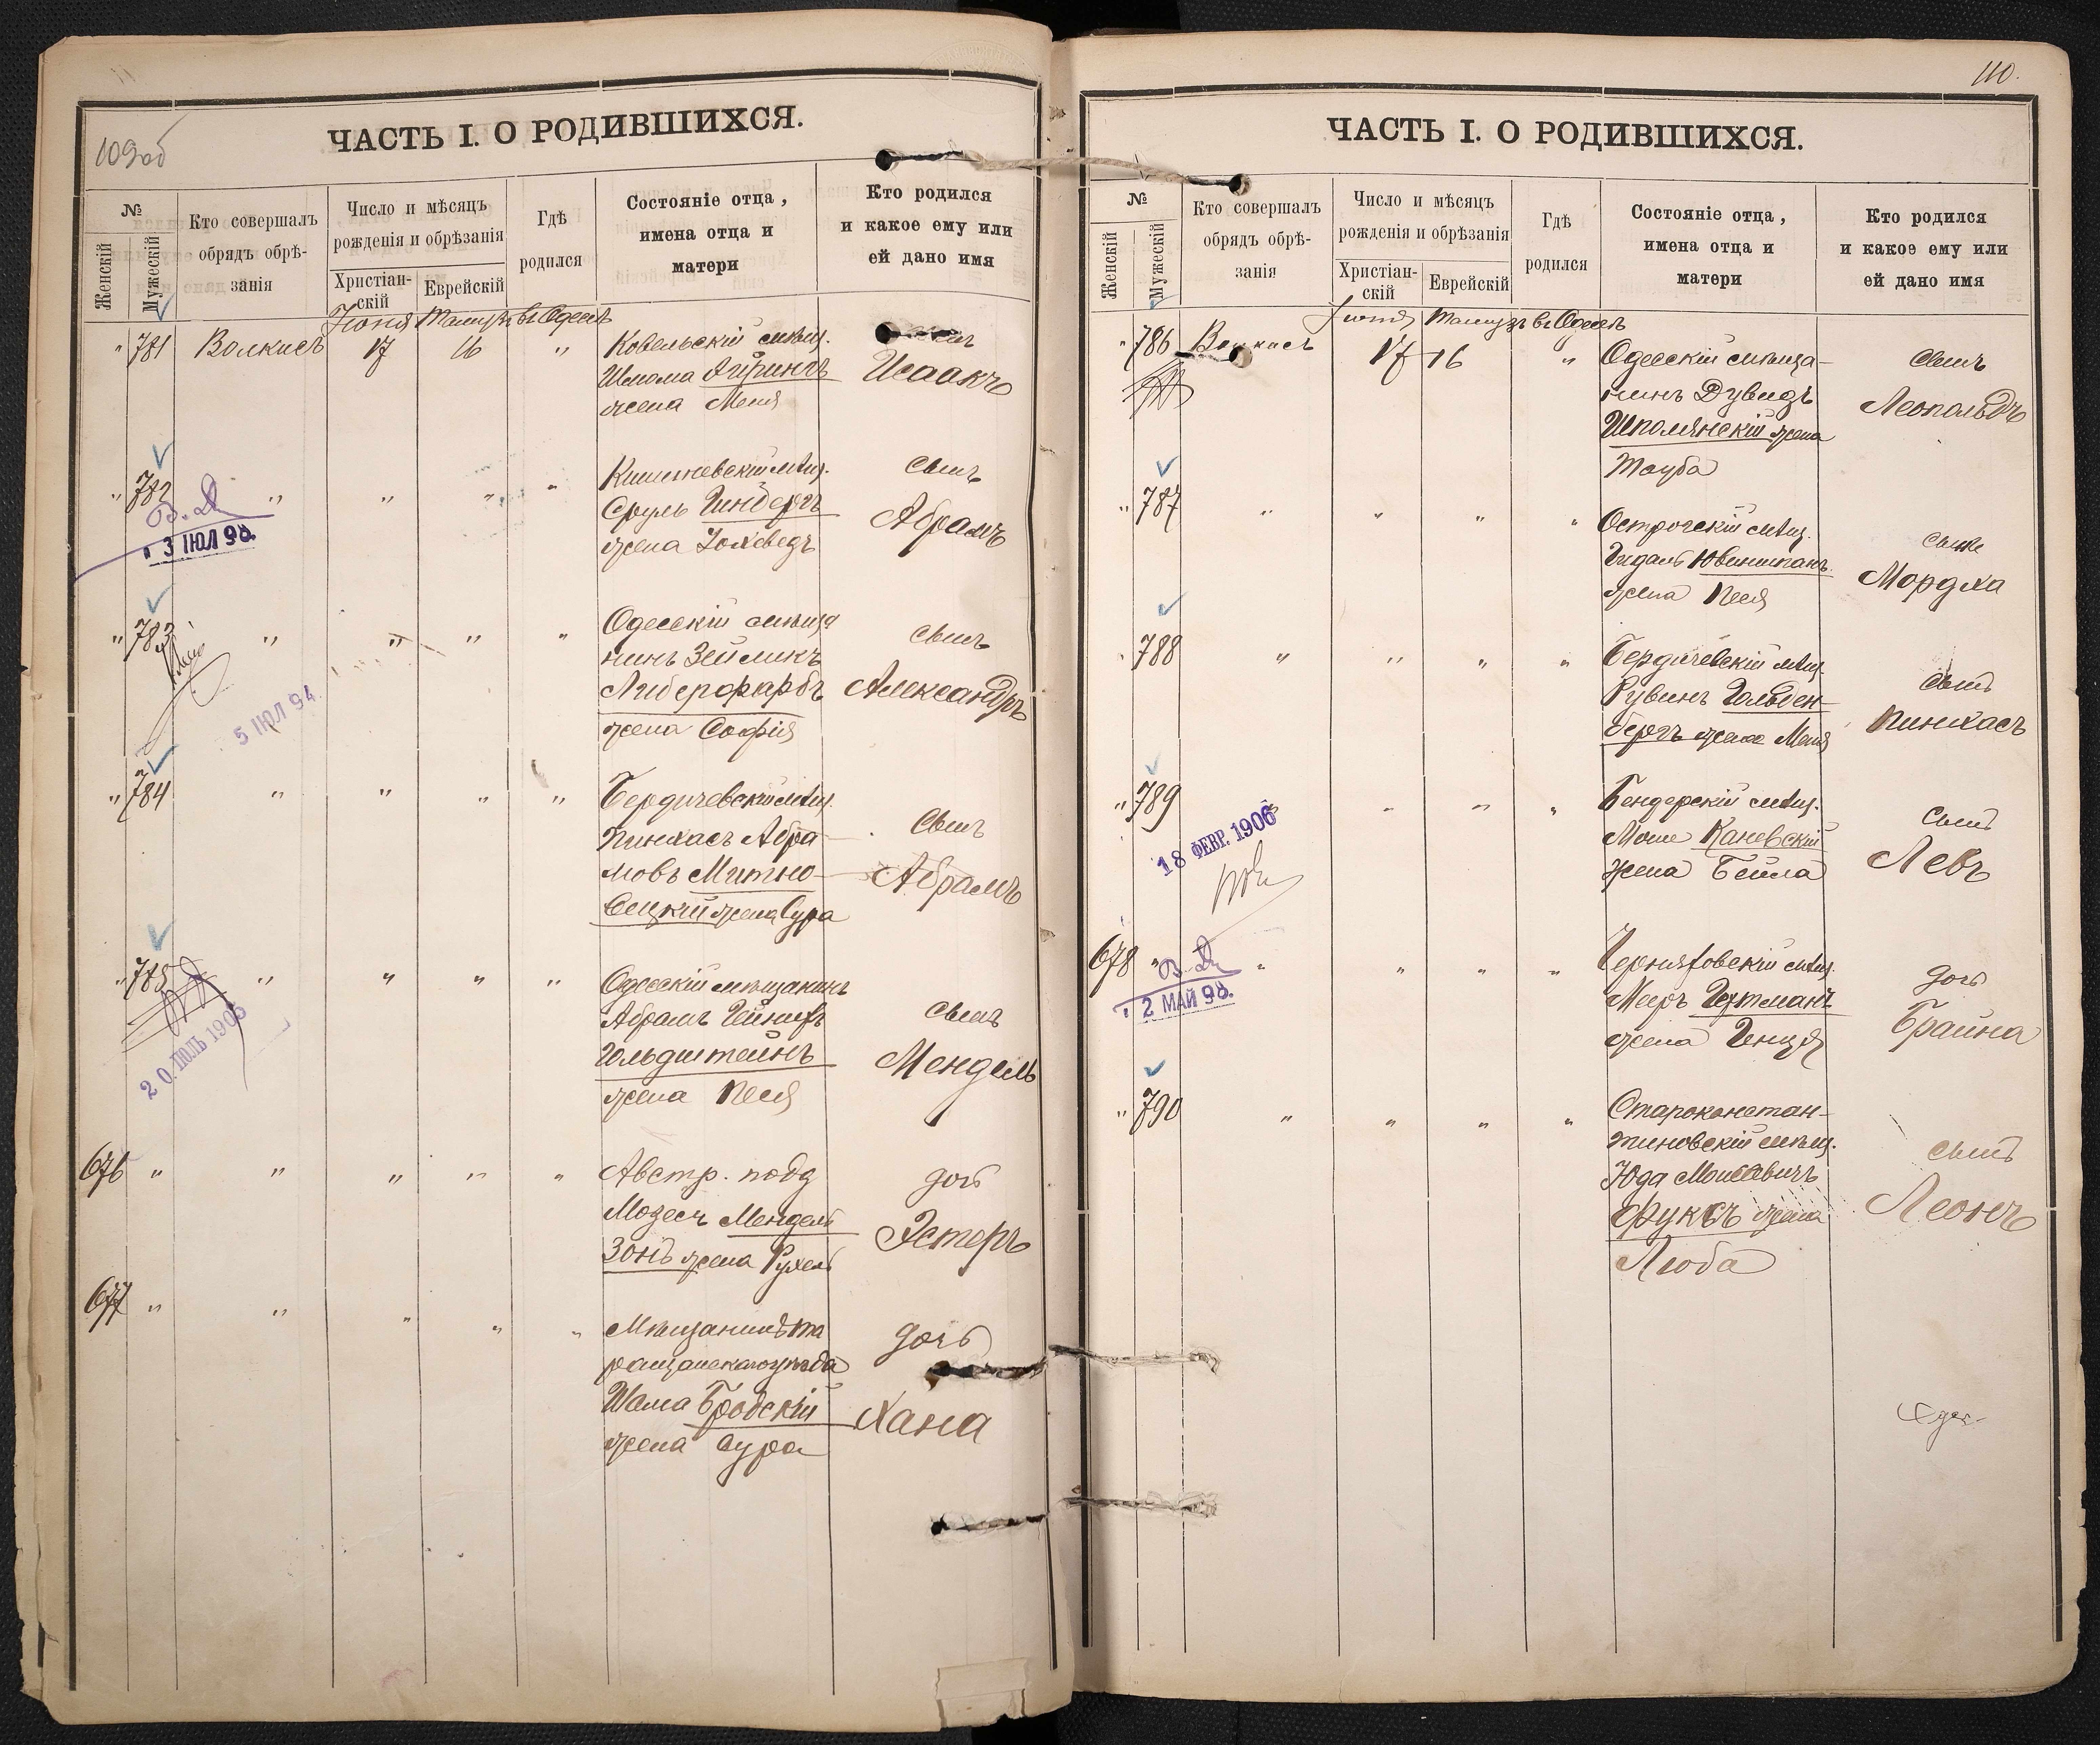 109об
ЧАСТЬ I. О РОДИВШИХСЯ.
№
Женскій
Мужескій
Кто совершалъ
обрядъ обрѣ-
занія
Число и мѣсяцъ
рожденія и обрѣзанія
Христіан-
скій
Еврейскій
Гдѣ
родился
Состояніе отца,
имена отца и
матери
Кто родился
и какое ему или
ей дано имя
Іюня Тамузъ въ Одессѣ
" 781 Волкисъ 17 16 "
Ковельскій мѣщ.
Шлома
жена Меня
Исаакъ
" 782 " " " "
Кишиневскій мѣщ.
Сруль Гинбергъ
жена Іохведъ
сынъ
Абрамъ
3 ІЮЛ 98.
" 783 " " " "
Одесскій мѣща
нинъ Зейликъ
Либерфарбъ
жена Софія
сынъ
Александръ
5 ІЮЛ 94
" 784 " " " "
Бердичевскій мѣщ.
Пинхасъ Абра-
мовъ Митно-
вецкій жена Сура
сынъ
Абрамъ
" 785 " " " "
Одесскій мѣщанинъ
Абрамъ
Гольдштейнъ
жена Песя
сынъ
Мендель
20.ІЮЛЬ 1905
676 " " " " "
Австр. подд
Мозесъ Мендель
зонъ жена Рухель
дочь
Эстеръ
677 " " " " "
Мѣщанинъ Та
ращанскаго уѣзда
Шама Бродскій
жена Сура
дочь
Хана
110.
ЧАСТЬ I. О РОДИВШИХСЯ.
№
Женскій
Мужескій
Кто совершалъ
обрядъ обрѣ-
занія
Число и мѣсяцъ
рожденія и обрѣзанія
Христіан-
скій
Еврейскій
Гдѣ
родился
Состояніе отца,
имена отца и
матери
Кто родился
и какое ему или
ей дано имя
Іюня Тамузъ въ Одессѣ
" 786 Волкисъ 17 16 "
Одесскій мѣща-
нинъ Дувидъ
Шполянскій жена
Тауба
сынъ
Леопольдъ
" 787 " " " "
Острогскій мѣщ.
жена Песя
сынъ
Мордха
" 788 " " " "
Бердичевскій мѣщ.
Рувинъ Гольден-
бергъ жена Меня
сынъ
Пинхасъ
" 789 " " " "
Бендерскій мѣщ.
Моше Каневскій
жена Бейла
сынъ
Левъ
18 ФЕВР. 1906
678 " " " " "
Черняховскій мѣщ.
Мееръ Гехтманъ
жена Генця
дочь
Брайна
2 МАЙ 98.
" 790 " " " "
Староконстан-
тиновскій мѣщ.
Юда Моисеевичъ
Фуксъ жена
Люба
сынъ
Леонъ